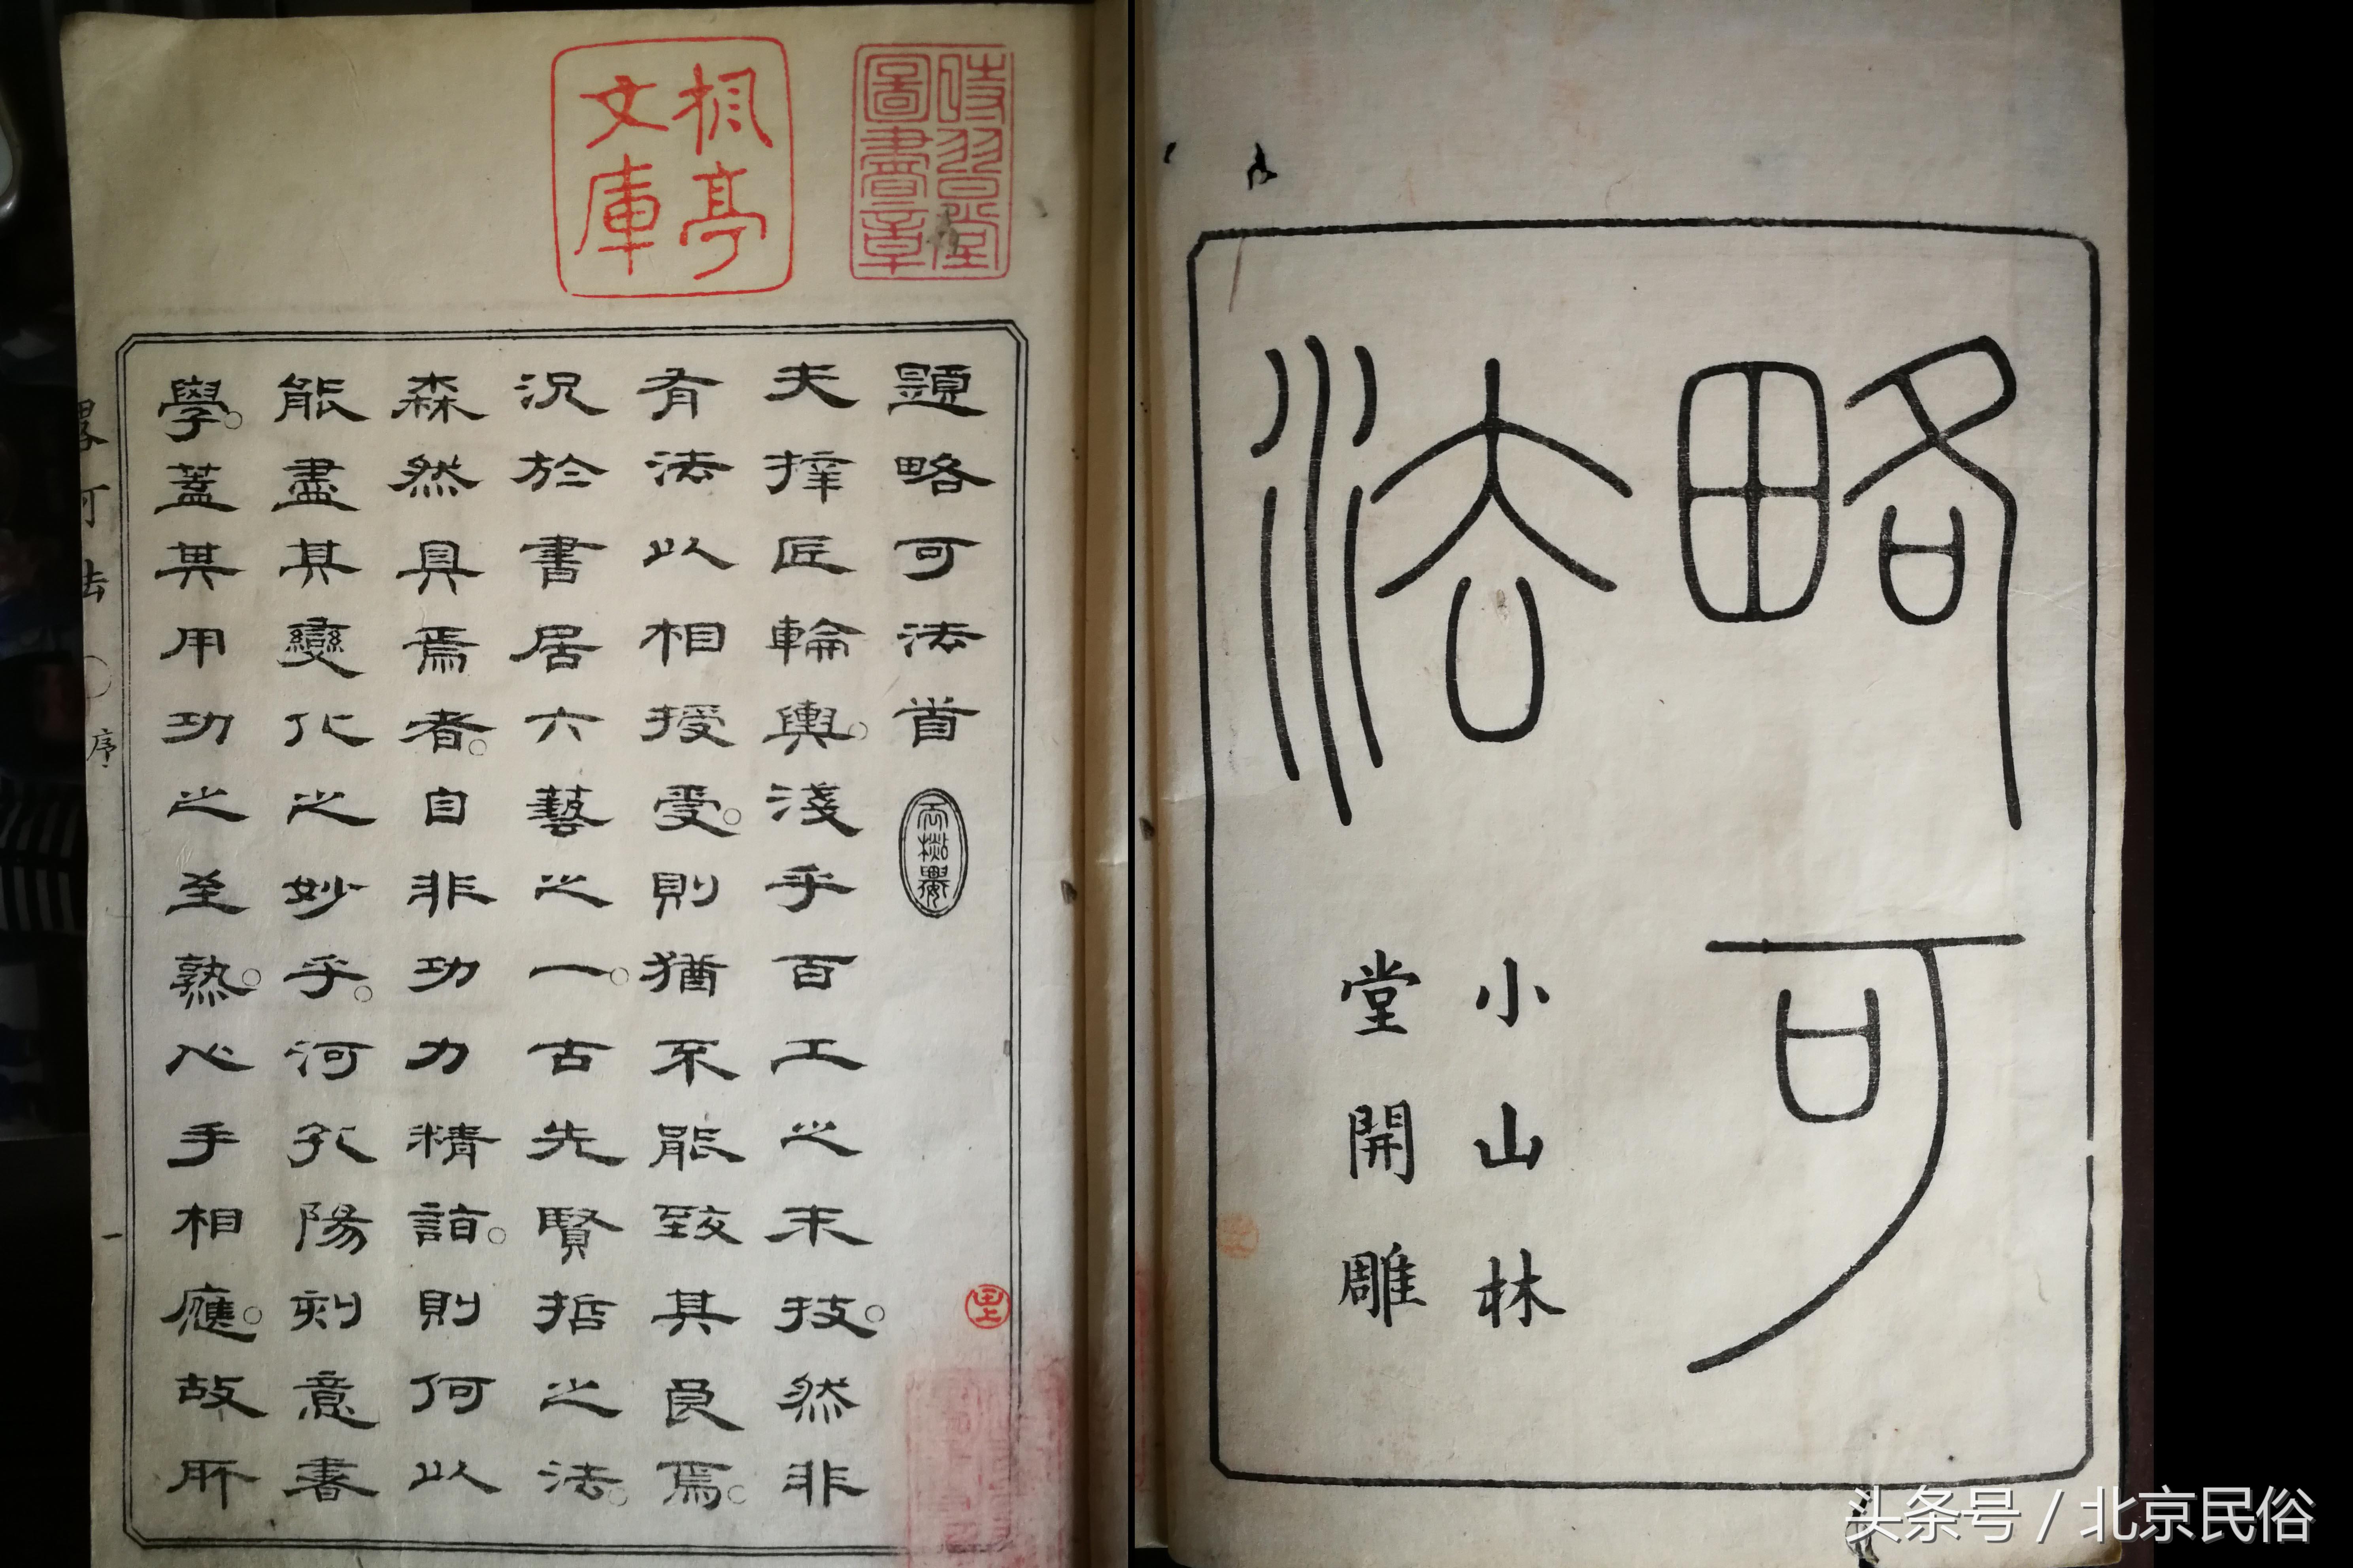 略可
法
小山林
堂開雕
時習堂
圖書章
楓亭
文庫
題略可法首
夫梓匠輪輿淺乎百工之末技然非
有法以相授受則猶不能致其良焉
況於書居六藝之一古先賢哲之法
森然具焉者自非功力精詣則何以
能盡其變化之妙乎河孔陽刻意書
學蓋其用功之至熟心手相應故所
略可法
序
一
头条号 / 北京民俗